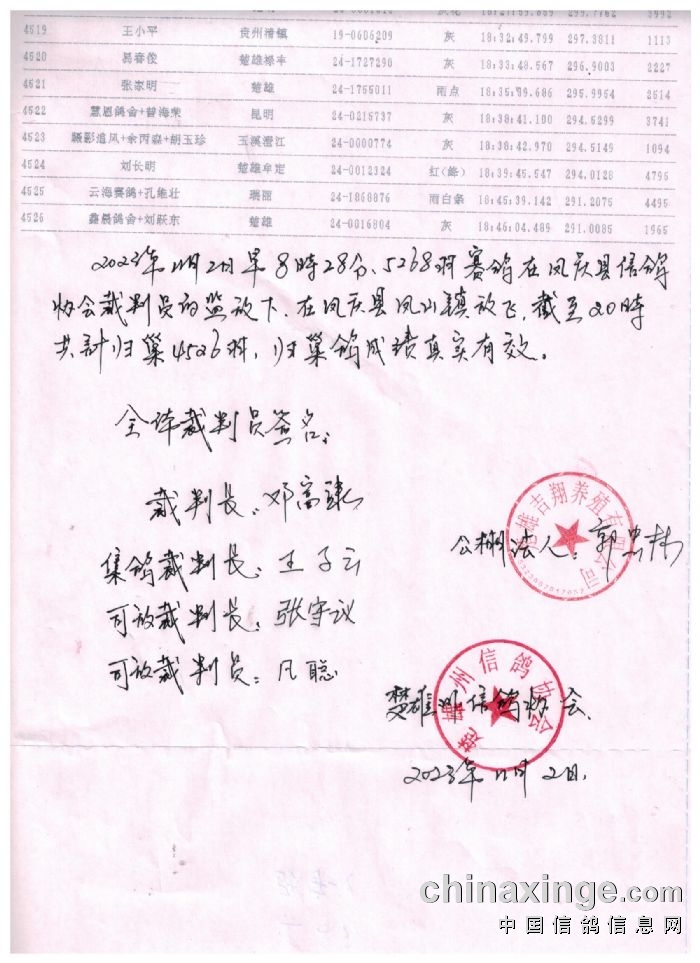 4519 王小平 贵州清镇 19-0606209 灰 18:32:49.799 297.3811 1113
4520 易春俊 楚雄禄丰 24-1727290 灰 18:33:48.567 296.9003 2227
4521 张家明 楚雄 24-1755011 雨点 18:35:39.686 295.9954 2514
4522 慧恩鸽舍+曾海荣 昆明 24-0215737 灰 18:38:41.100 294.5299 3741
4523 蹑影追风+余丙森+胡玉珍 玉溪澄江 24-0000774 灰 18:38:42.970 294.5149 1094
4524 刘长明 楚雄牟定 24-0012324 红(绛) 18:39:45.547 294.0128 4795
4525 云海赛鸽+孔维壮 瑞丽 24-1868876 雨白条 18:45:39.142 291.2075 4495
4526 鑫晨鸽舍+刘跃东 楚雄 24-0016804 灰 18:46:04.489 291.0085 1965
2023年11月2日早8时28分、5268羽赛鸽在凤庆县信鸽
协会裁判员的监放下.在凤庆县凤山镇放飞,截至20时
共计归巢4526羽,归巢鸽成绩真实有效。
全体裁判员签名:
裁判长:邓高
公棚法人:郭忠林
集鸽裁判长:王子云
司放裁判长:张守议
司放裁判员:凡聪
楚雄州信鸽协会
2023年11月2日.
楚雄吉翔养殖有限公司
楚雄州信鸽协会
chinaxinge.com
中国信鸽信息网